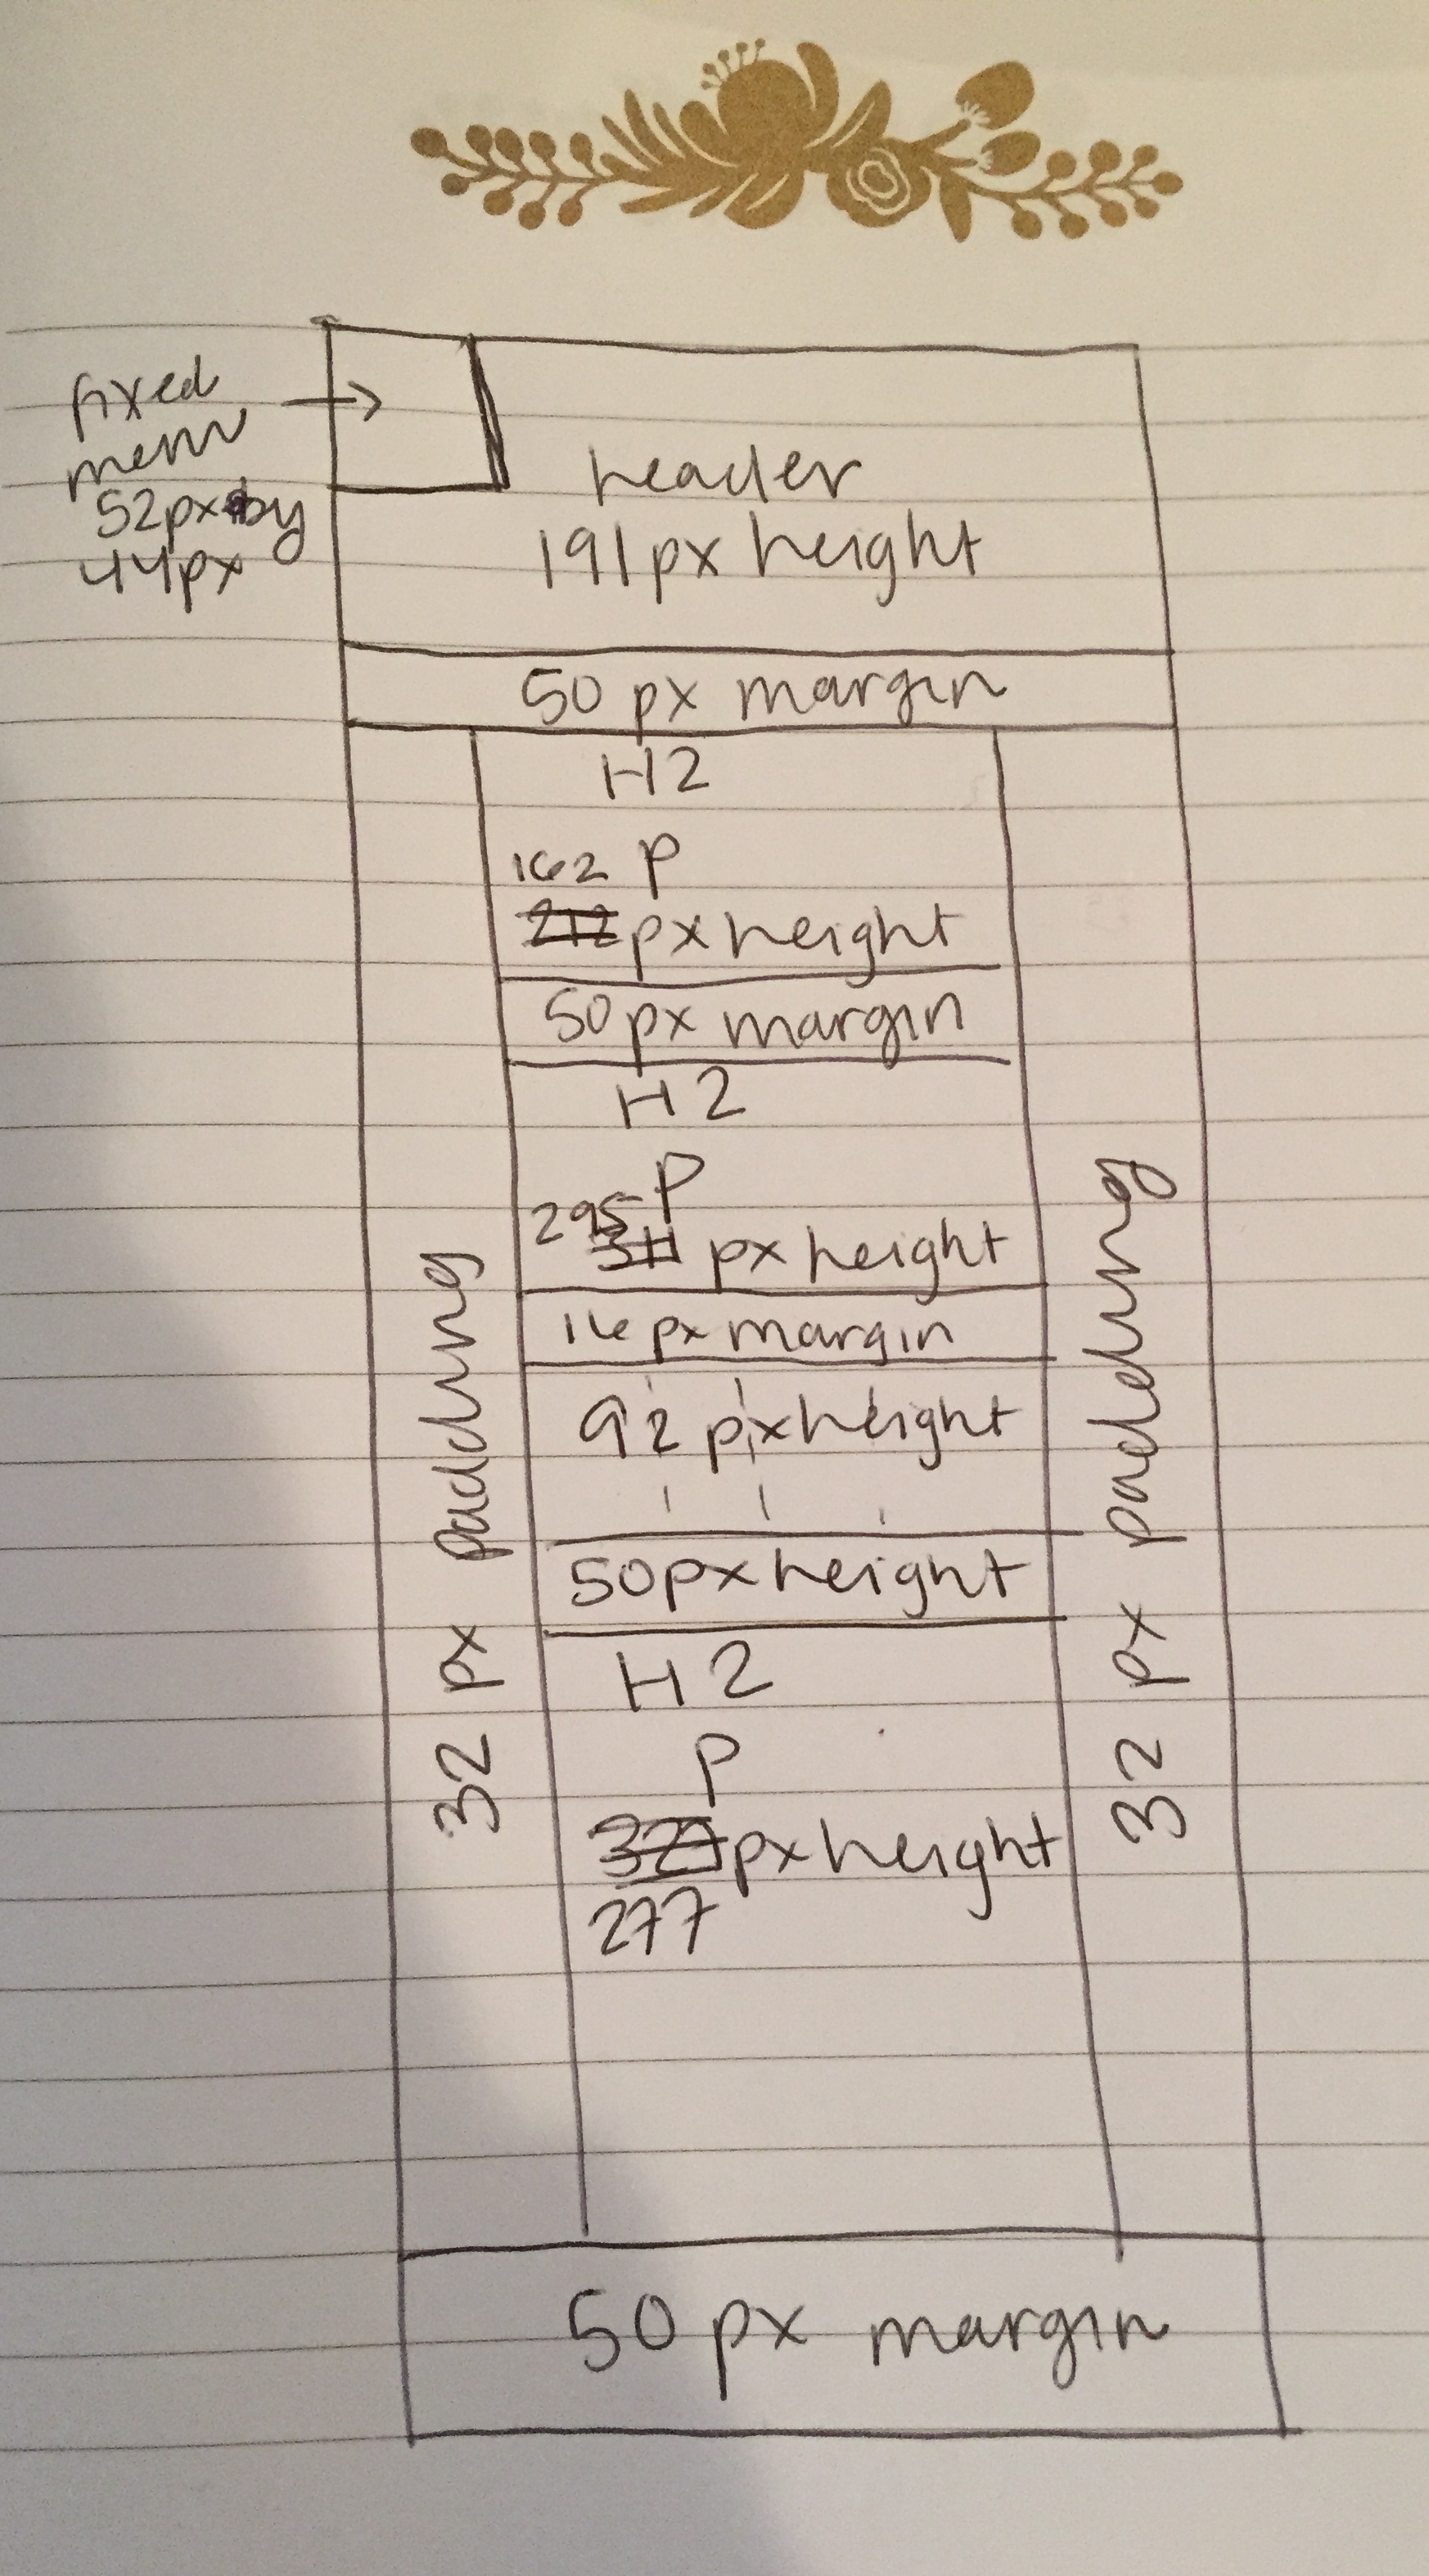 fixed
menu
52px by
44px
header
191px height
50 px margin
H2
162 P
212 px height
50px margin
H2
P
295
311 px height
16px margin
92 px height
50px height
H2
P
327 px height
277
50 px margin
32 px padding
32 px padding